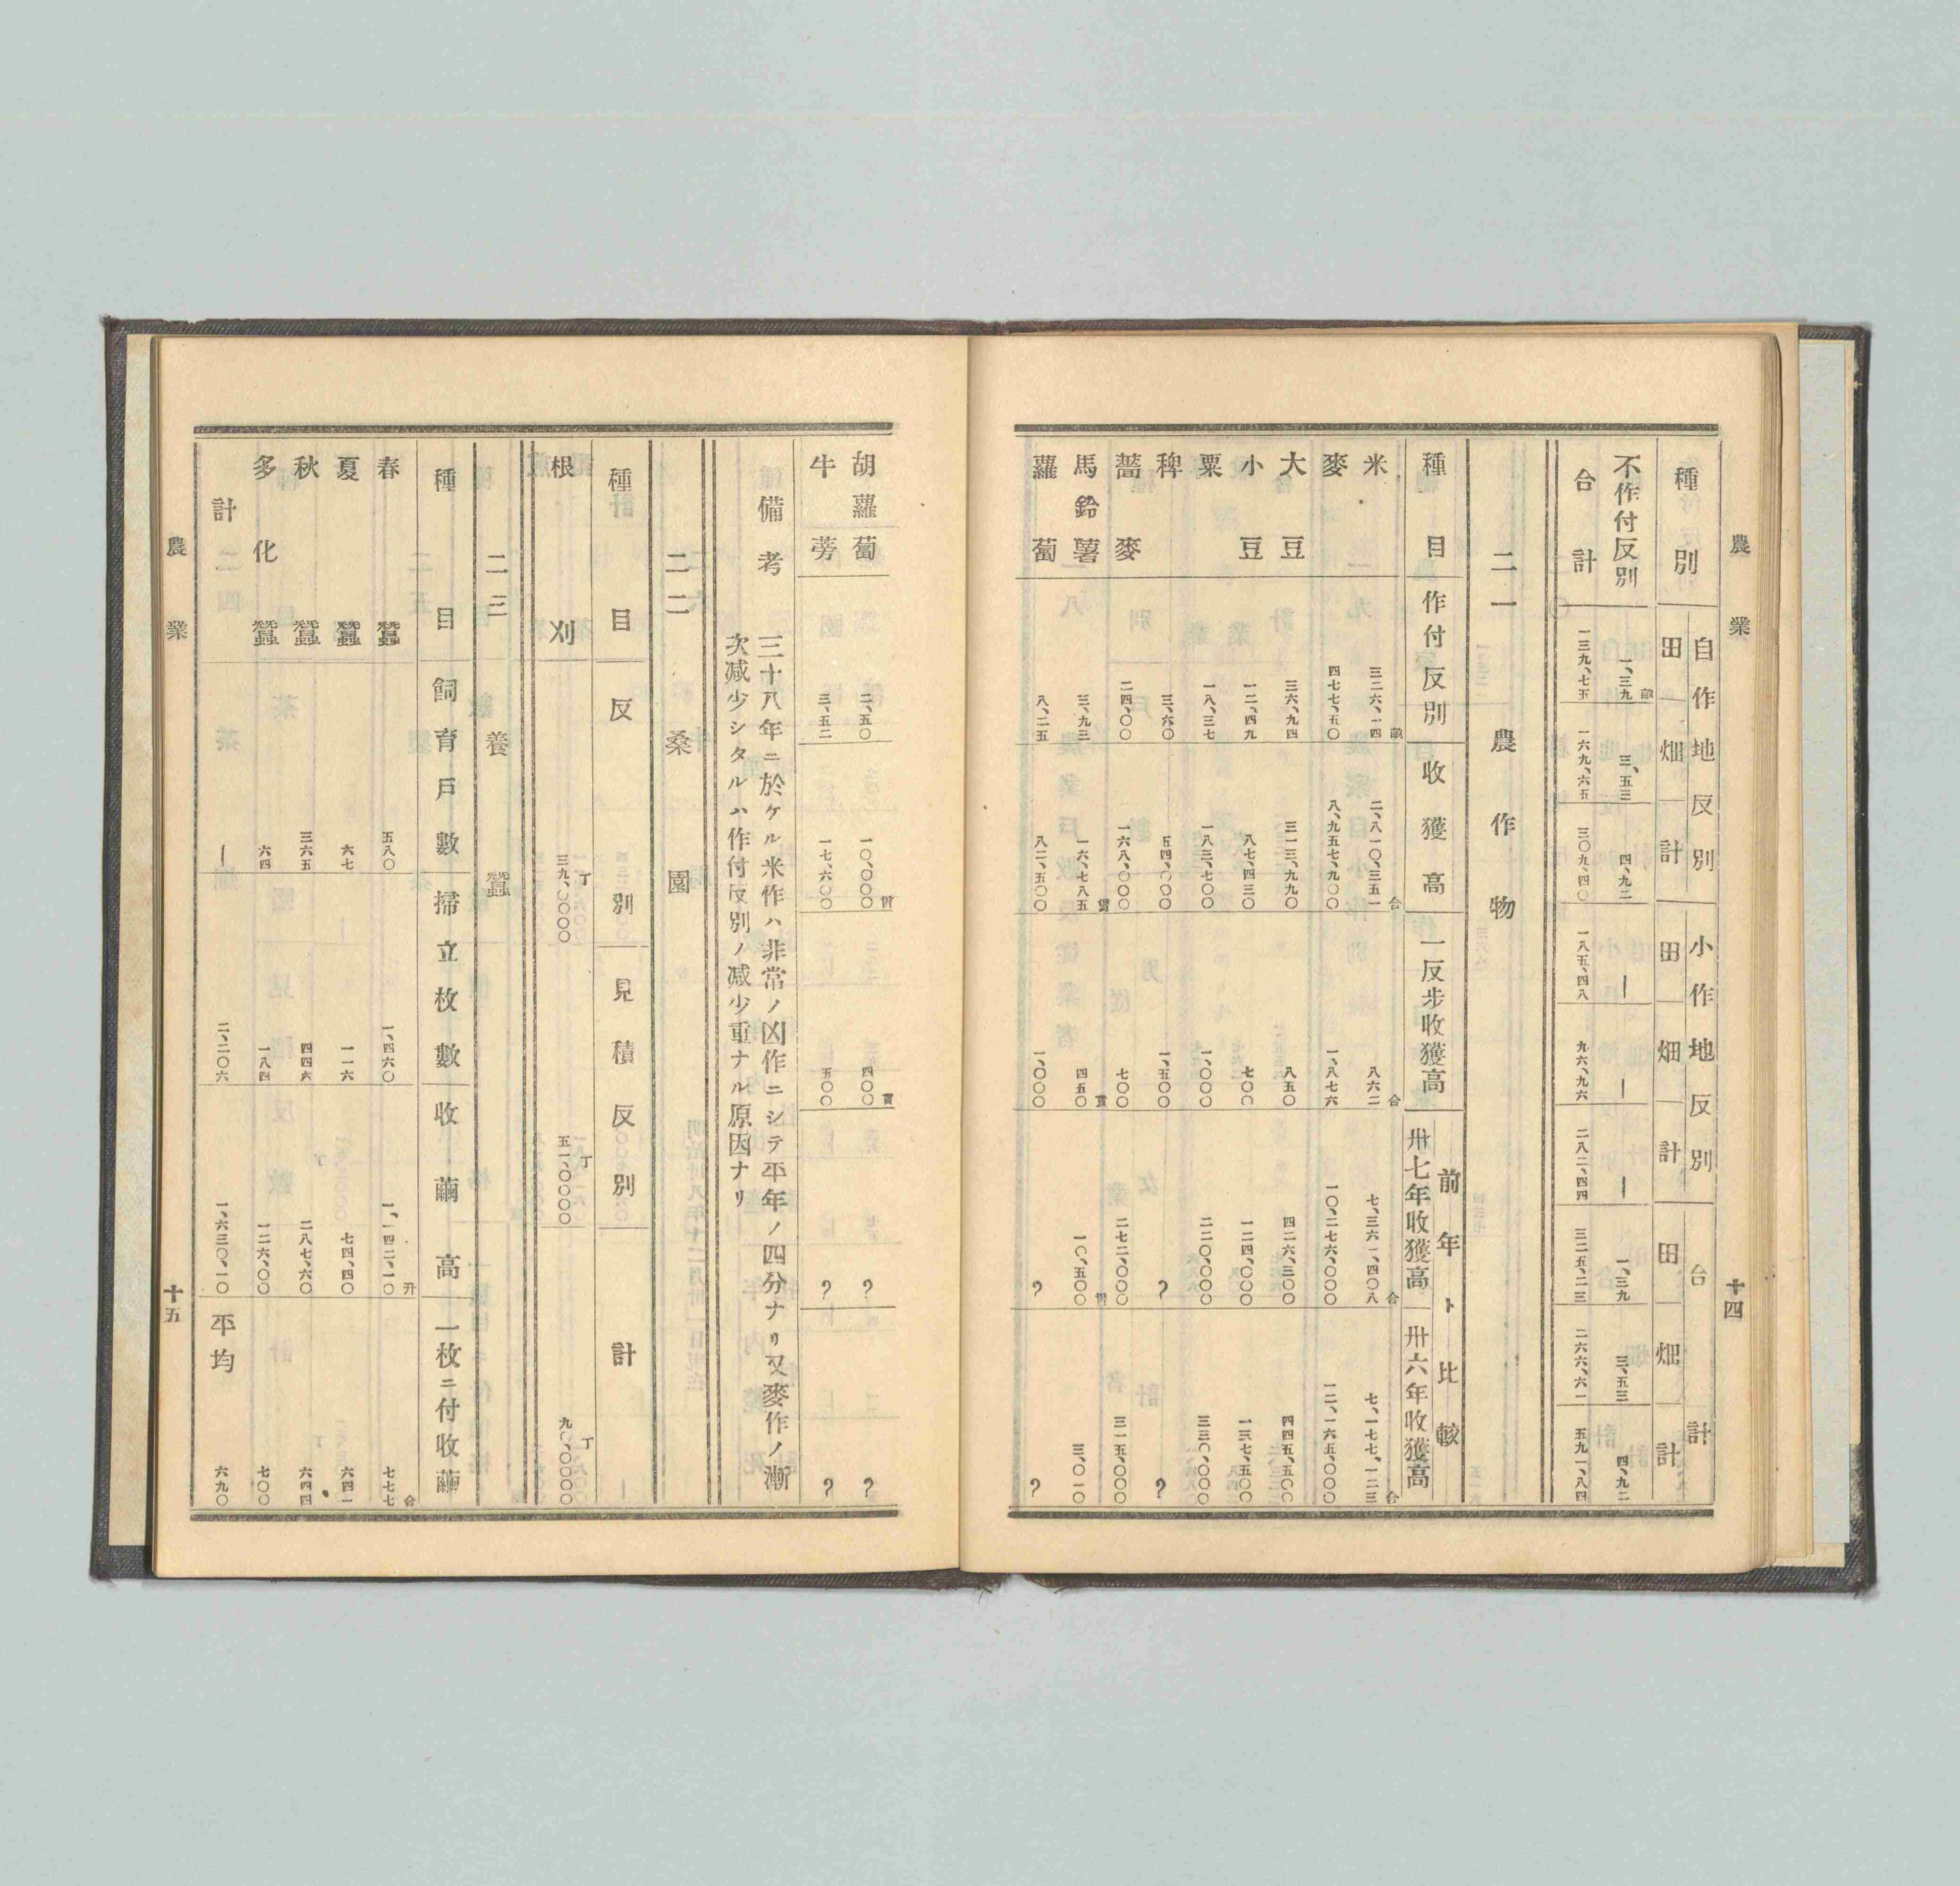 農業
十四
種別
自作地反別
小作地反別
台計
田
畑
計
田
畑
計
田
畑
計
不作付反別
一、三九畝
三、五三
四、九二
｜
｜
｜
一、三九
三、五三
四、九二
合計
一三九、七五
一六九、六五
三〇九、四〇
一八五、四八
九六、九六
二八二、四四
三二五、二三
二六六、六一
五九一、八四
二一 農作物
種目
作付反別
收獲高
一反步收獲高
前年ト比較
卅七年收獲高
卅六年收獲高
米
三二六、一四畝
二、八一〇、三五一合
八六二合
七、三六一、四〇八合
七、一七七、一二三合
麥
四七七、五〇
八、九五七、九〇〇
一、八七六
一〇、二七六、〇〇〇
一二、一六五、〇〇〇
大豆
三六、九四
三一三、九九〇
八五〇
四二六、三〇〇
四四五、五〇〇
小豆
一二、四九
八七、四三〇
七〇〇
一二四、〇〇〇
一三七、五〇〇
粟
一八、三七
一八三、七〇〇
一、〇〇〇
二二〇、〇〇〇
三三〇、〇〇〇
稗
三、六〇
五四、〇〇〇
一、五〇〇
?
?
蕎麥
二四、〇〇
一六八、〇〇〇
七〇〇
二七二、〇〇〇
三一五、〇〇〇
馬鈴薯
三、九三
一六、七八五貫
四五〇貫
一〇、五〇〇貫
三、〇一〇
蘿蔔
八、二五
八二、五〇〇
一、〇〇〇
?
?
胡蘿蔔
二、五〇
一〇、〇〇〇貫
四〇〇貫
?
?
牛蒡
三、五二
一七、六〇〇
五〇〇
?
?
備考
三十八年ニ於ケル米作ハ非常ノ凶作ニシテ平年ノ四分ナリ又麥作ノ漸
次減少シタルハ作付反別ノ減少重ナル原因ナリ
二二 桑園
種目
反別
見積反別
計
根刈
三九、〇〇〇〇丁
五一、〇〇〇〇丁
九〇、〇〇〇〇丁
二三 養蠶
種目
飼育戶數
掃立枚數
收繭高
一枚ニ付收繭
春蠶
五八〇
一、四六〇
一、一四二、一〇升
七七七合
夏蠶
六七
一一六
七四、四〇
六四一
秋蠶
三六五
四四六
二八七、六〇
六四四
多化蠶
六四
一八四
一二六、〇〇
七〇〇
計
｜
二、二〇六
一、六三〇、一〇
平均
六九〇
農業
十五